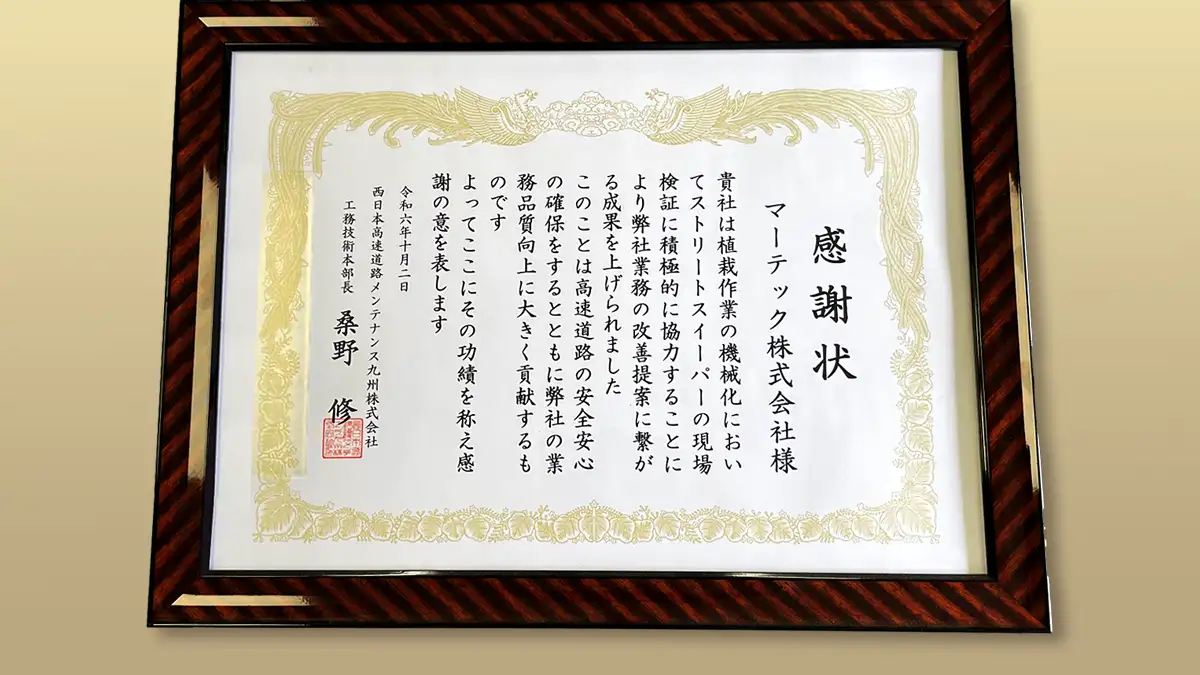 感謝状
マーテック株式会社様
貴社は植栽作業の機械化におい
てストリートスイーパーの現場
検証に積極的に協力することに
より弊社業務の改善提案に繋が
る成果を上げられました
このことは高速道路の安全安心
の確保をするとともに弊社の業
務品質向上に大きく貢献するも
のです
よってここにその功績を称え感
謝の意を表します
令和六年十月二日
西日本高速道路メンテナンス九州株式会社
工務技術本部長 桑野 修